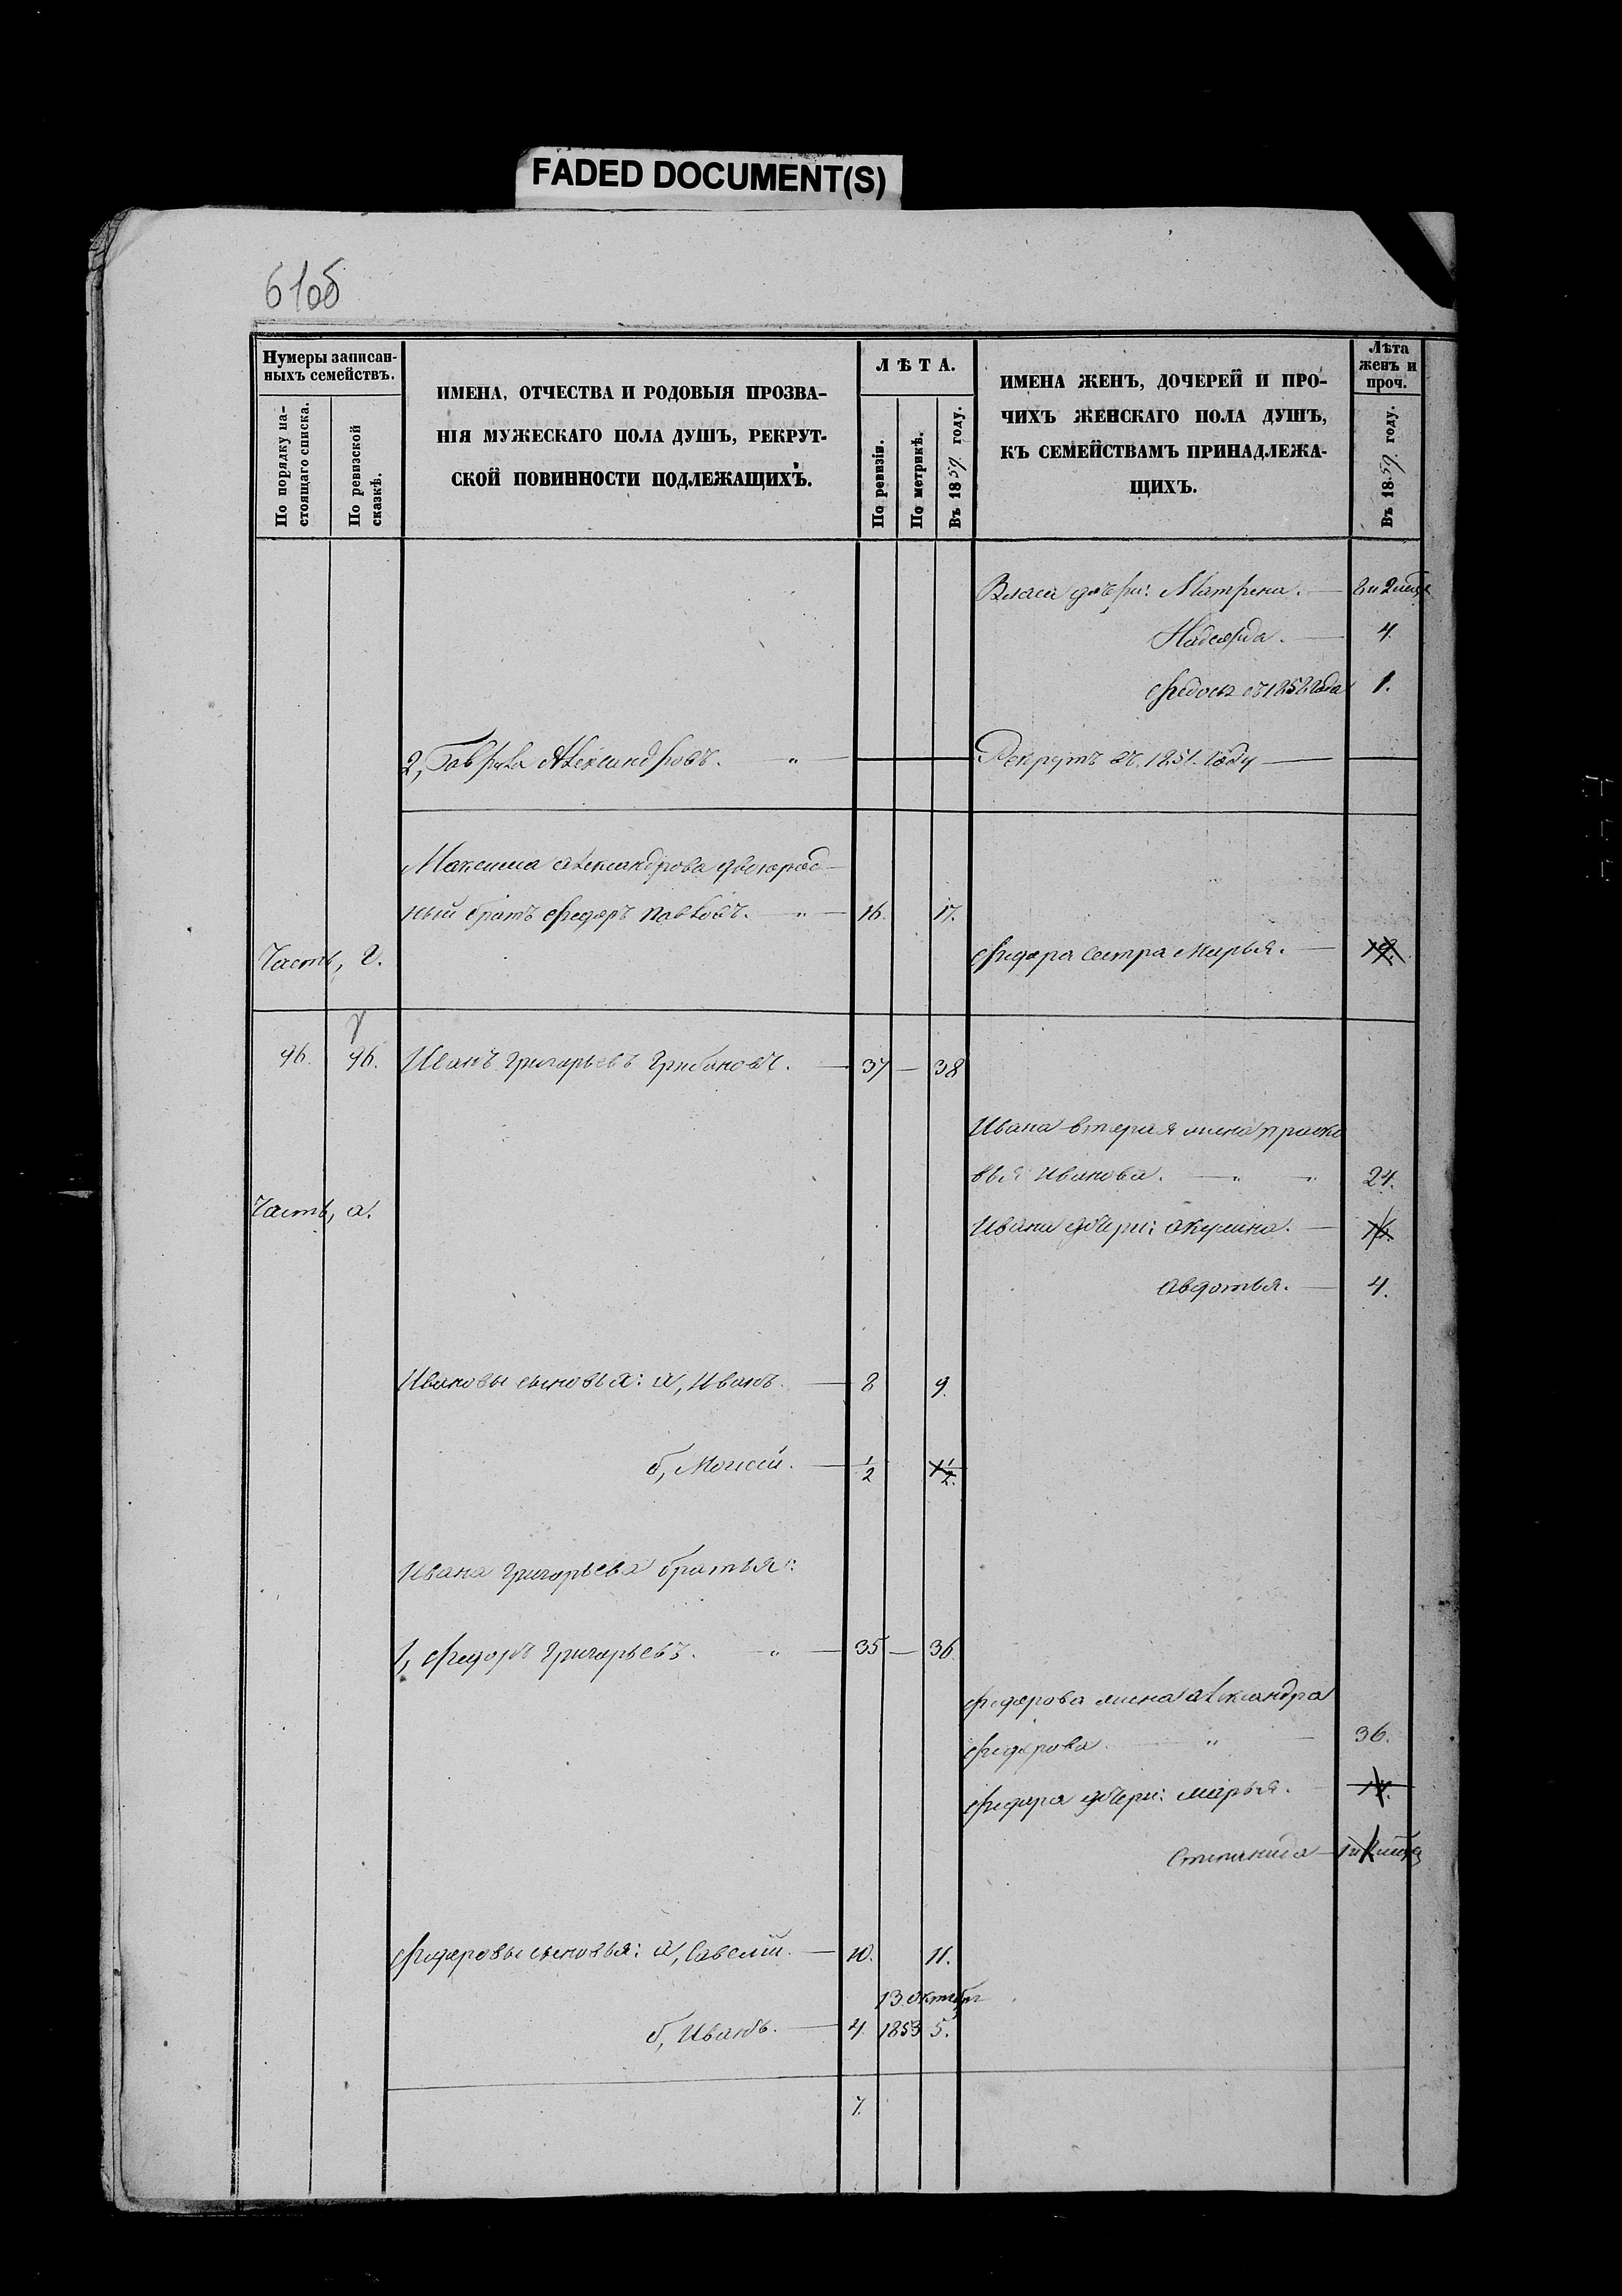 FADED DOCUMENT(S)
61об
Нумеры записан-
ныхъ семействъ.
По порядку на-
стоящаго списка.
По ревизской
сказкѣ.
ИМЕНА, ОТЧЕСТВА И РОДОВЫЯ ПРОЗВА-
НІЯ МУЖЕСКАГО ПОЛА ДУШЪ, РЕКРУТ-
СКОЙ ПОВИННОСТИ ПОДЛЕЖАЩИХЪ.
ЛѢТА.
По ревизіи.
По метрикѣ.
Въ 1859. году.
ИМЕНА ЖЕНЪ, ДОЧЕРЕЙ И ПРО-
ЧИХЪ ЖЕНСКАГО ПОЛА ДУШЪ,
КЪ СЕМЕЙСТВАМЪ ПРИНАДЛЕЖА-
ЩИХЪ.
Лѣта
женъ и
проч.
Въ 1859. году.
Власа дочери: Матрена. —
Надежда. — 4.
съ 1858 года 1.
2, Гаврила Александровъ. " — Рекрутъ въ 1851. году —
Максима Александрова двоюрод-
ный братъ Федоръ Павловъ. " — 16. 17.
Часть, г. Федора сестра Марья. —
96. 96. Иванъ Григорьевъ Грибановъ. — 37 — 38
Ивана вторая жена Праско
вья Иванова. — " " 24.
Часть, а. Ивана дочери: Акулина. —
Авдотья. — 4.
Ивановы сыновья: а, Иванъ. — 8 9.
б, Моисей. — 1/2 1 1/2.
Ивана Григорьева братья:
1, Федоръ Григорьевъ. " — 35 — 36.
Федорова жена Александра
Федорова. " — 36.
Федора дочери: Марья. —
Степанида —
Федоровы сыновья: а, Савелій. — 10. 11.
13 октября
б, Иванъ. — 4. 1853 5.
7.